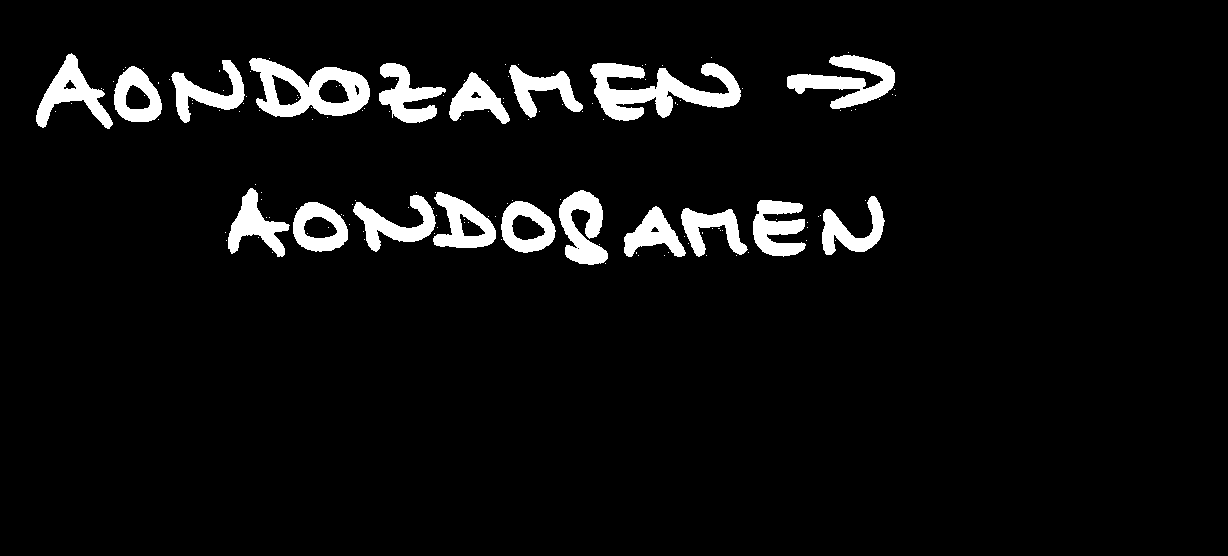 AONDOZAMEN →
AONDOSAMEN